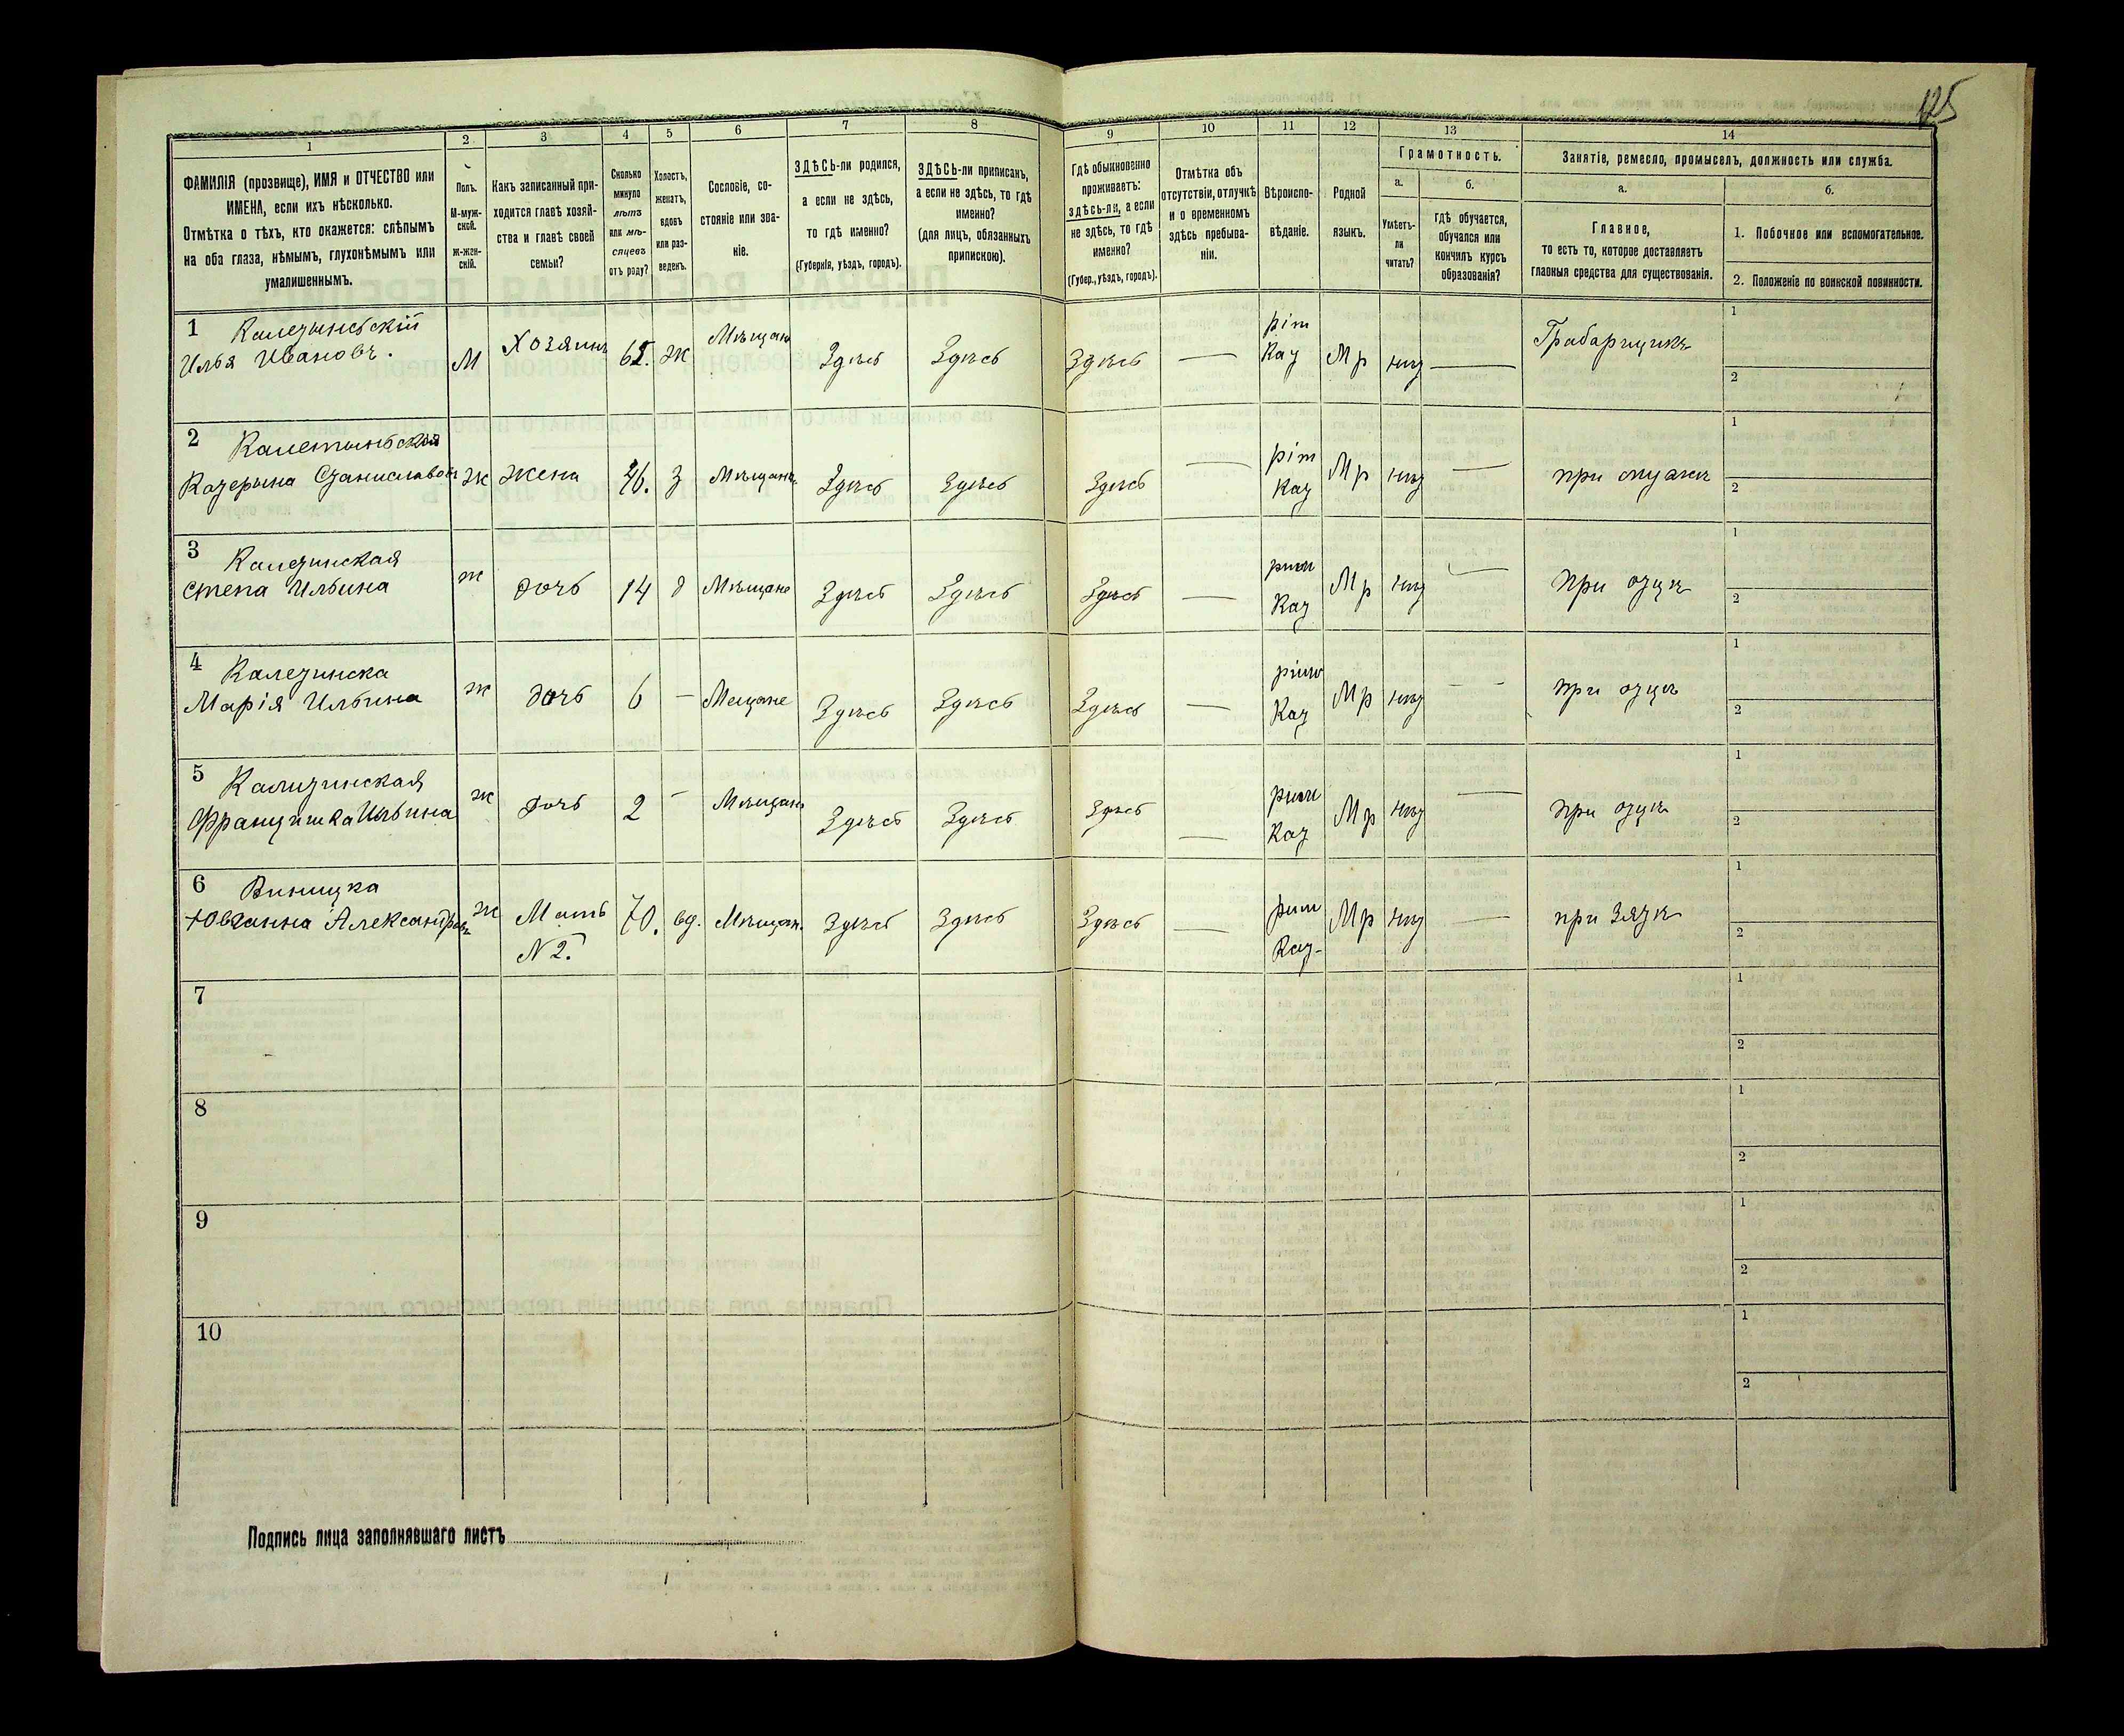 125
1 2 3 4 5 6 7 8 9 10 11 12 13 14
ФАМИЛІЯ (прозвище), ИМЯ и ОТЧЕСТВО или
ИМЕНА, если ихъ нѣсколько.
Отмѣтка о тѣхъ, кто окажется: слѣпымъ
на оба глаза, нѣмымъ, глухонѣмымъ или
умалишеннымъ.
Полъ.
М-муж-
ской.
Ж-жен-
скій.
Какъ записанный при-
ходится главѣ хозяй-
ства и главѣ своей
семьи?
Сколько
минуло
лѣтъ
или мѣ-
сяцевъ
отъ роду?
Холостъ,
женатъ,
вдовъ
или раз-
веденъ.
Сословіе, со-
стояніе или зва-
ніе.
ЗДѢСЬ-ли родился,
а если не здѣсь,
то гдѣ именно?
(Губернія, уѣздъ, городъ).
ЗДѢСЬ-ли приписанъ,
а если не здѣсь, то гдѣ
именно?
(для лицъ, обязанныхъ
припискою).
Гдѣ обыкновенно
проживаетъ:
здѣсь-ли, а если
не здѣсь, то гдѣ
именно?
(Губер., уѣздъ, городъ).
Отмѣтка объ
отсутствіи, отлучкѣ
и о временномъ
здѣсь пребыва-
ніи.
Вѣроиспо-
вѣданіе.
Родной
языкъ.
Грамотность.
а.
Умѣетъ-
ли
читать?
б.
гдѣ обучается,
обучался или
кончилъ курсъ
образованія?
Занятіе, ремесло, промыселъ, должность или служба.
а.
Главное,
то есть то, которое доставляетъ
главныя средства для существованія.
б.
1. Побочное или вспомогательное.
2. Положеніе по воинской повинности.
1 Калезыньскій
Илья Ивановъ. М Хозяинъ ж Мѣщан Здѣсь Здѣсь Здѣсь — рім Мр — Грабарщикъ
Каз
1
2
2 Калетыньская
Казерына Станиславов Ж жена 46. з Мѣщане Здѣсь Здѣсь Здѣсь — рім Мр — при мужѣ
Каз
1
2
3 Калезинская
Степа Ильина ж дочь 14 д Мѣщане Здѣсь Здѣсь Здѣсь — рим Мр — при озцѣ
Каз
1
2
4 Калезинска
Марія Ильина ж дочь 6 — Мещане Здѣсь Здѣсь Здѣсь — рим Мр — при озцѣ
Каз
1
2
5 Кализинская
Францишка Ильина ж дочь 2 — Мѣщане Здѣсь Здѣсь Здѣсь — рим Мр — при озцѣ
Каз
1
2
6 Виницка
Ж Мать 70. вд. Мѣщан. Здѣсь Здѣсь Здѣсь — рим Мр — при Зязѣ
N 2. Каз-
1
2
7
1
2
8
1
2
9
1
2
10
1
2
Подпись лица заполнявшаго листъ